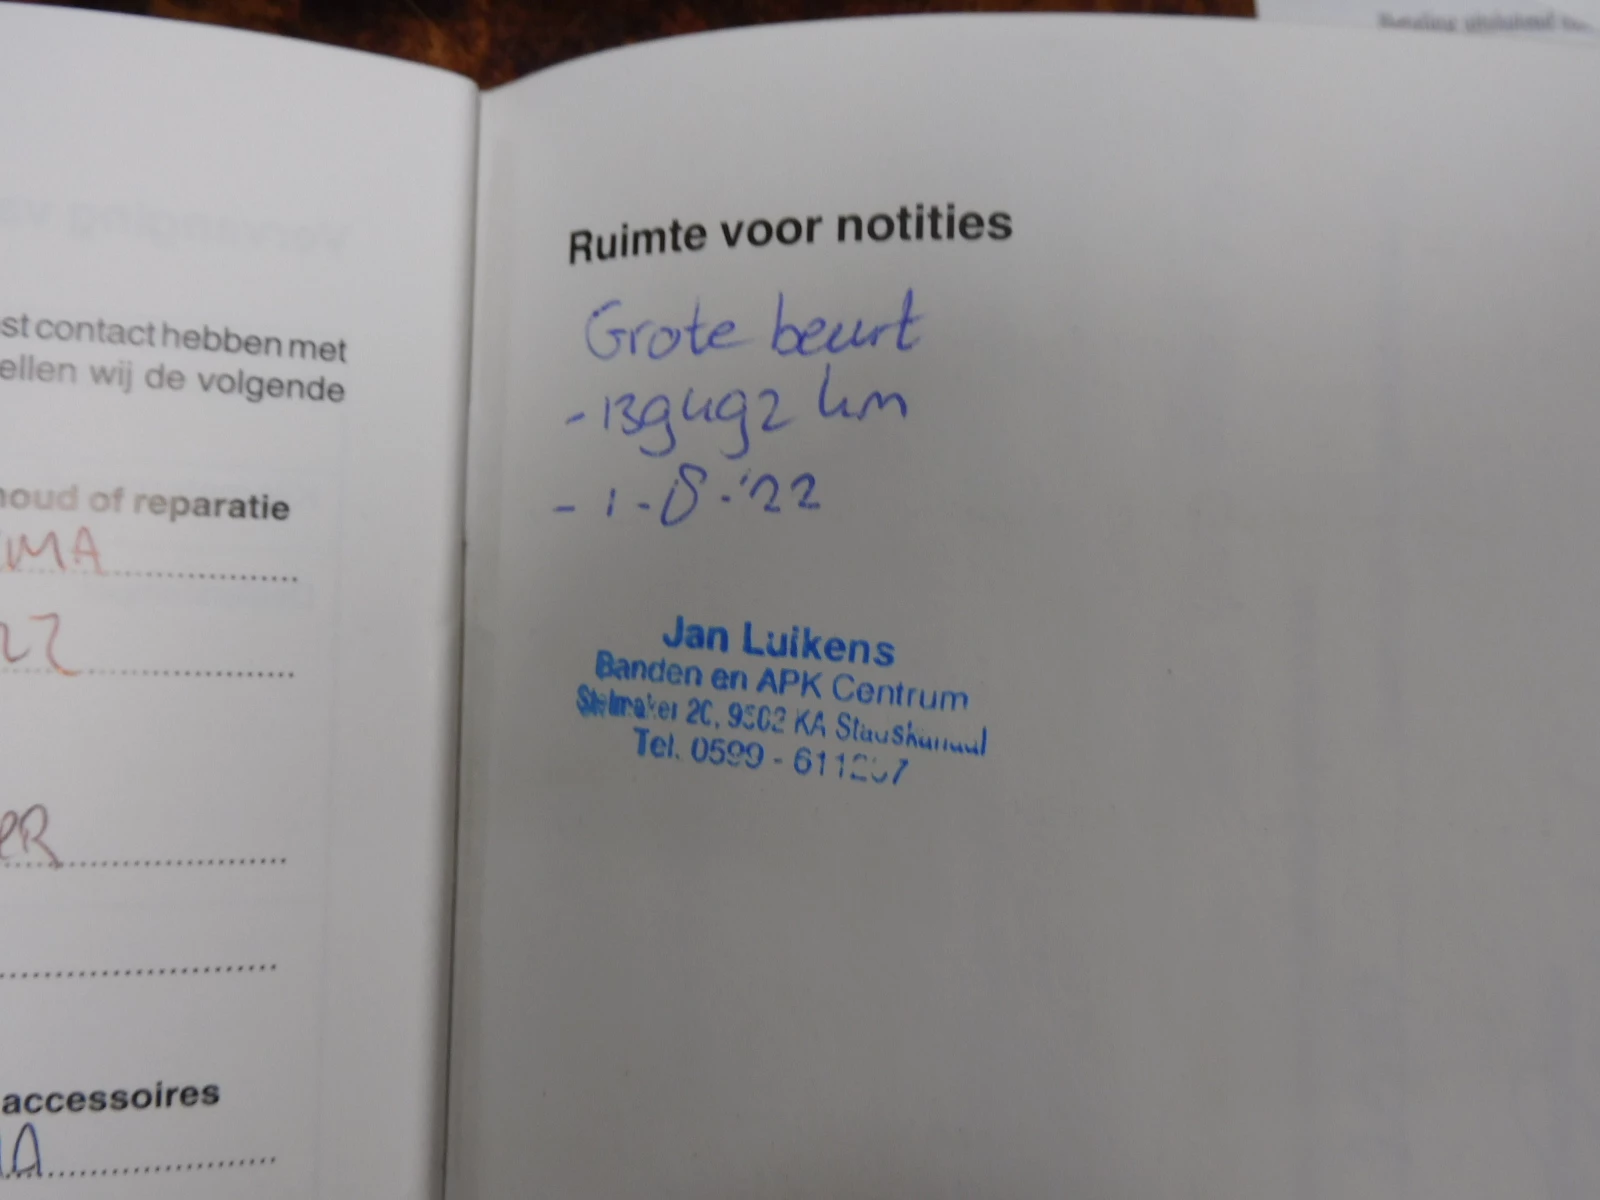 st contact hebben met
ellen wij de volgende
houd of reparatie
EMA
22
ER
accessoires
A
Ruimte voor notities
Grote beurt
- 139492 km
- 1-8-'22
Jan Luikens
Banden en APK Centrum
Stelmaker 20, 9502 KA Stadskanaal
Tel. 0599 - 611267